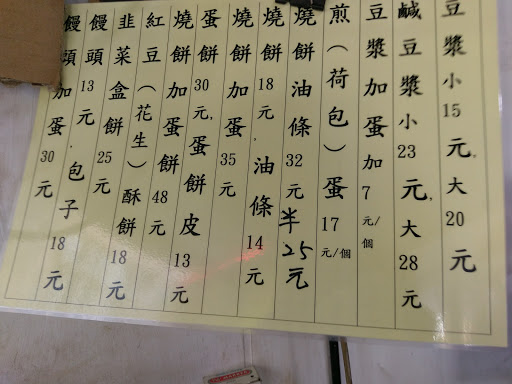 豆漿小15元,大20元
鹹豆漿小23元,大28元
豆漿加蛋加7元/個
煎(荷包)蛋17元/個
燒餅油條32元半25元
燒餅18元.油條14元
燒餅加蛋35元
蛋餅30元,蛋餅皮13元
燒餅加蛋餅48元
紅豆(花生)酥餅18元
韭菜盒餅25元
饅頭13元.包子18元
饅頭加蛋30元